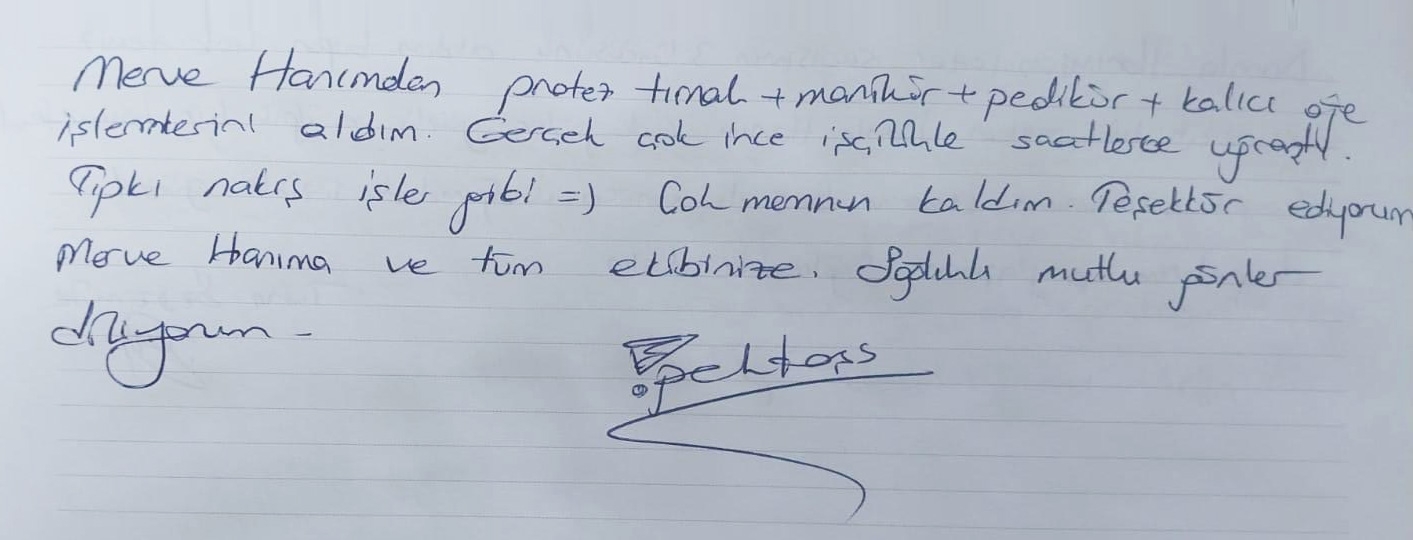 Merve Hanımdan protez tırnak + manikür + pedikür + kalıcı oje
işlemlerini aldım. Gerçek çok ince işçilikle saatlerce uğraştı.
Tıpkı nakış işler gibi =) Çok memnun kaldım. Teşekkür ediyorum
Merve Hanıma ve tüm ekibinize. Sağlıklı mutlu günler
diliyorum -